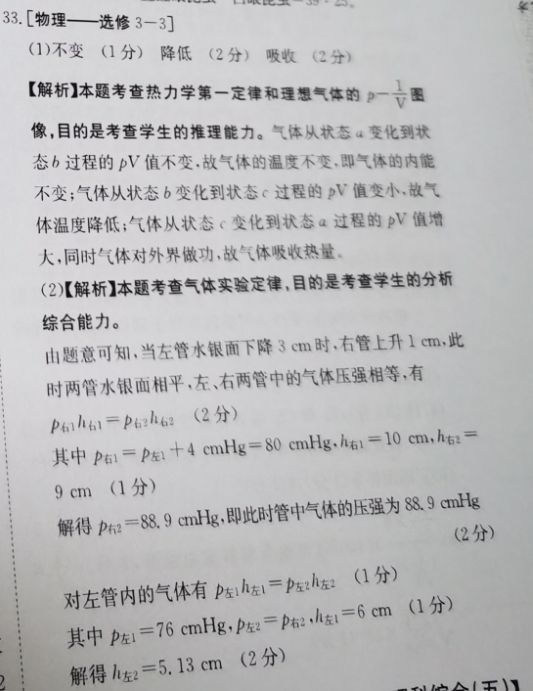 33.[物理——选修 3-3]
(1)不变 (1分) 降低 (2分) 吸收 (2分)
【解析】本题考查热力学第一定律和理想气体的 p-1/V 图
像,目的是考查学生的推理能力。气体从状态 a 变化到状
态 b 过程的 pV 值不变,故气体的温度不变,即气体的内能
不变;气体从状态 b 变化到状态 c 过程的 pV 值变小,故气
体温度降低;气体从状态 c 变化到状态 a 过程的 pV 值增
大,同时气体对外界做功,故气体吸收热量。
(2)【解析】本题考查气体实验定律,目的是考查学生的分析
综合能力。
由题意可知,当左管水银面下降 3 cm 时,右管上升 1 cm,此
时两管水银面相平,左、右两管中的气体压强相等,有
p右1h右1=p右2h右2 (2分)
其中 p右1=p左1+4 cmHg=80 cmHg,h右1=10 cm,h右2=
9 cm (1分)
解得 p右2=88.9 cmHg,即此时管中气体的压强为 88.9 cmHg
(2分)
对左管内的气体有 p左1h左1=p左2h左2 (1分)
其中 p左1=76 cmHg,p左2=p右2,h左1=6 cm (1分)
解得 h左2=5.13 cm (2分)
综合(五)】